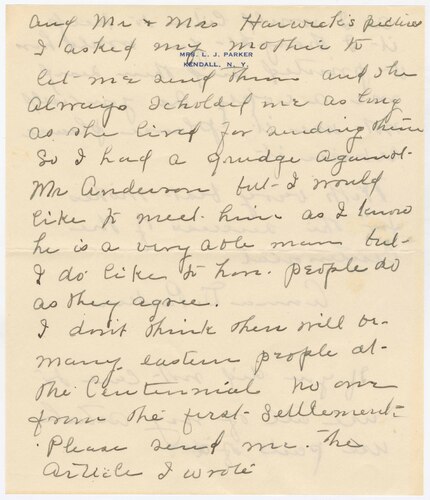 and Mr & Mrs Harwick's picture
I asked my mother to
MRS. L. J. PARKER
KENDALL, N. Y.
let me send them and she
always scholded me as long
as she lived for sending them
So I had a grudge against
Mr Anderson but I would
like to meet him as I know
he is a very able man but
I do like to have people do
as they agree.
I don't think there will be
many eastern people at
the Centennial no one
from the first Settlement
Please send me the
Article I wrote